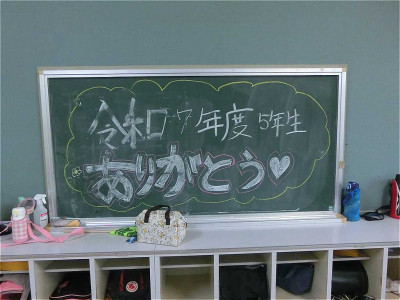 令和7年度5年生
ありがとう♡